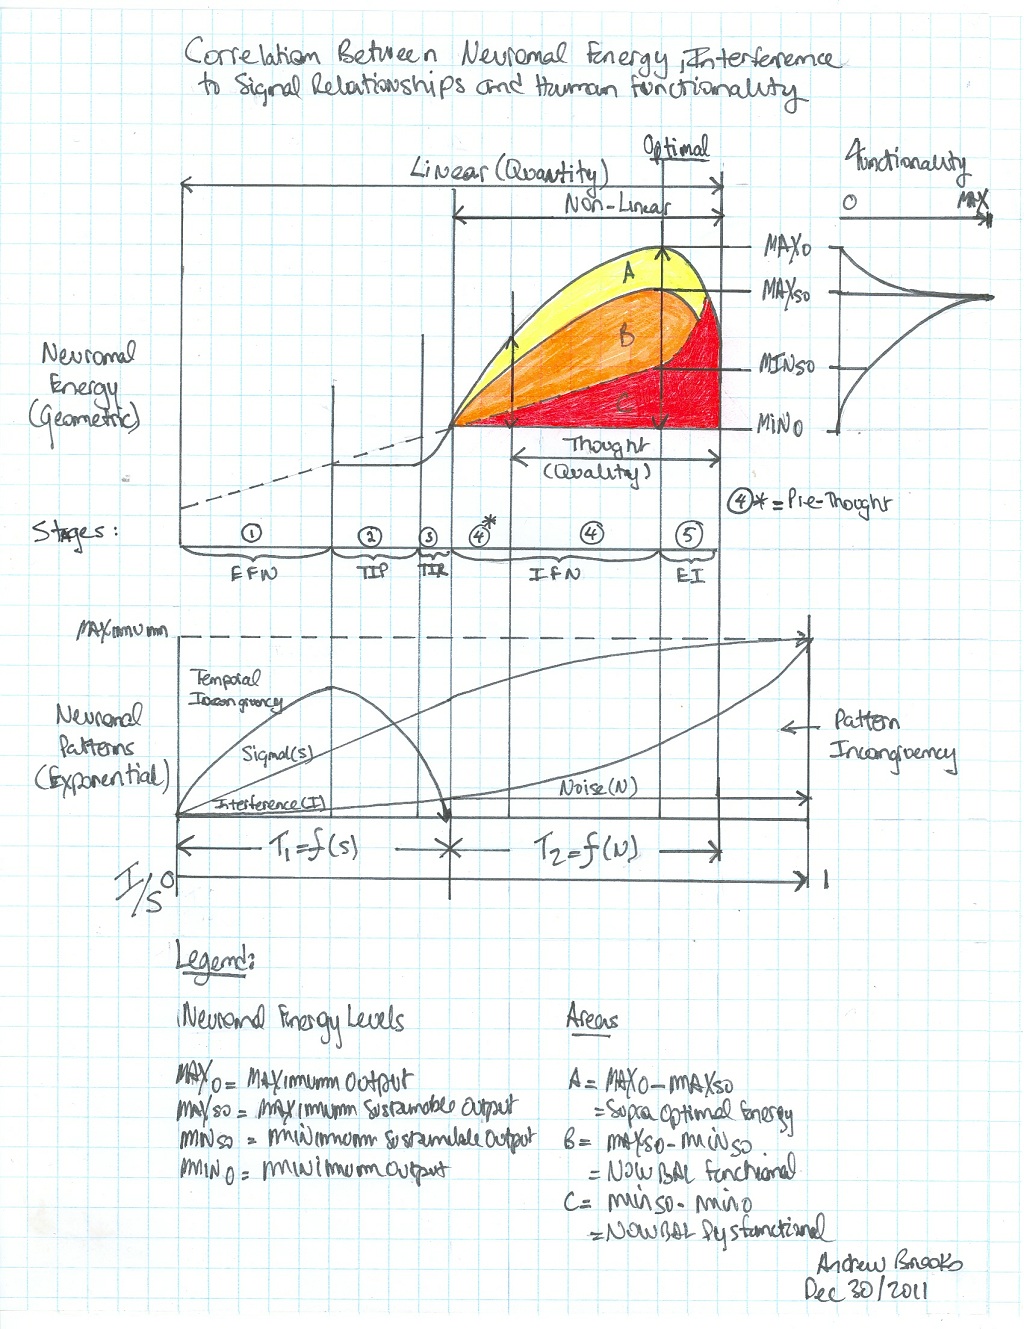 Correlation Between Neuronal Energy, Interference
to Signal Relationships and Human Functionality
Optimal
Linear (Quantity)
Non-Linear
Functionality
0 MAX
MAXO
MAXSO
MINSO
MINO
A
B
C
Neuronal
Energy
(Geometric)
Thought
(Quality)
4* = Pre-Thought
Stages:
1 2 3 4* 4 5
EFN TIP TIR IFN EI
MAXimum
Temporal
Incongruency
Signal(S)
Interference(I)
Noise(N)
Neuronal
Patterns
(Exponential)
Pattern
Incongruency
T1=f(S) T2=f(N)
I/S 0 1
Legend:
Neuronal Energy Levels
MAXO = MAXimum Output
MAXSO = MAXimum Sustainable Output
MINSO = MINimum Sustainable Output
MINO = MINimum Output
Areas
A = MAXO - MAXSO
= Supra Optimal Energy
B = MAXSO - MINSO
= NOWBAL Functional
C = MINSO - MINO
= NOWBAL Dysfunctional
Andrew Brooks
Dec 30/2011